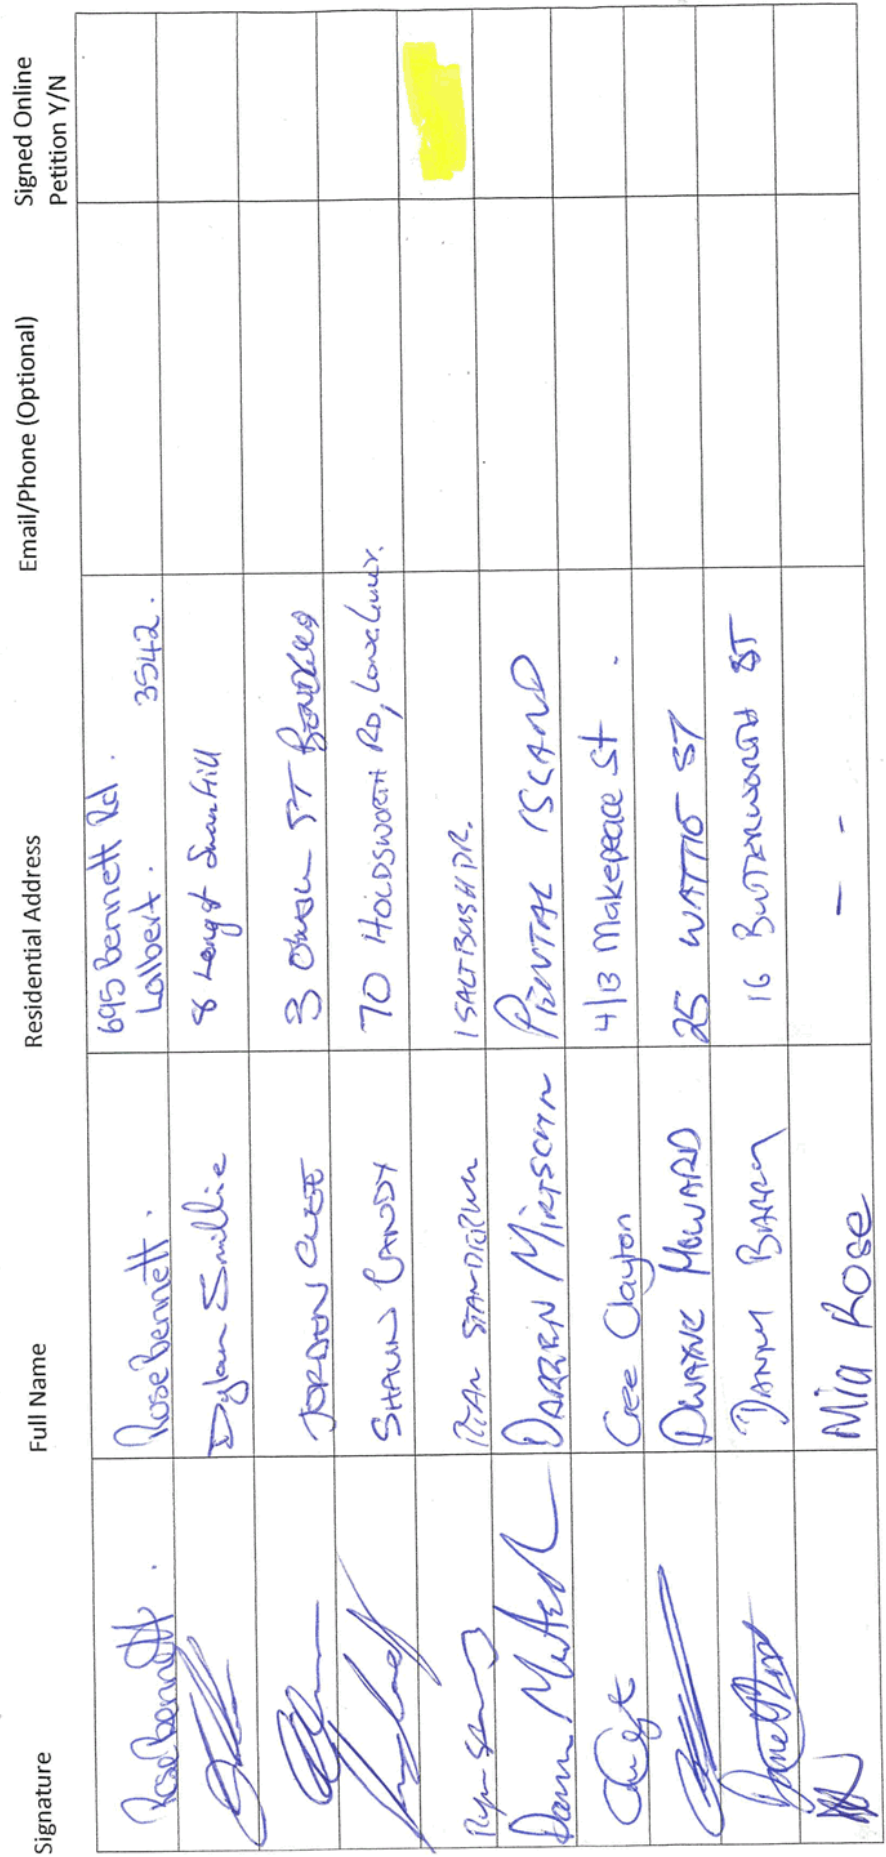 Signature Full Name Residential Address Email/Phone (Optional) Signed Online
Petition Y/N
Rose Bennett. Rose Bennett. 695 Bennett Rd.
Lalbert. 3542.
Dylan Smillie 8 Swan Hill
JORDEN 3 ST
SHAUN CANDY 70 HOLDSWORTH RD,
RYAN 1 SALTBUSH DR.
DARREN MIRTSCHIN PENTAL ISLAND
Cree Clayton 4/13 Makepeace St.
DWAYNE HOWARD 25 ST
DANNY BARRY 16 BUTTERWORTH ST
Mia Rose - -